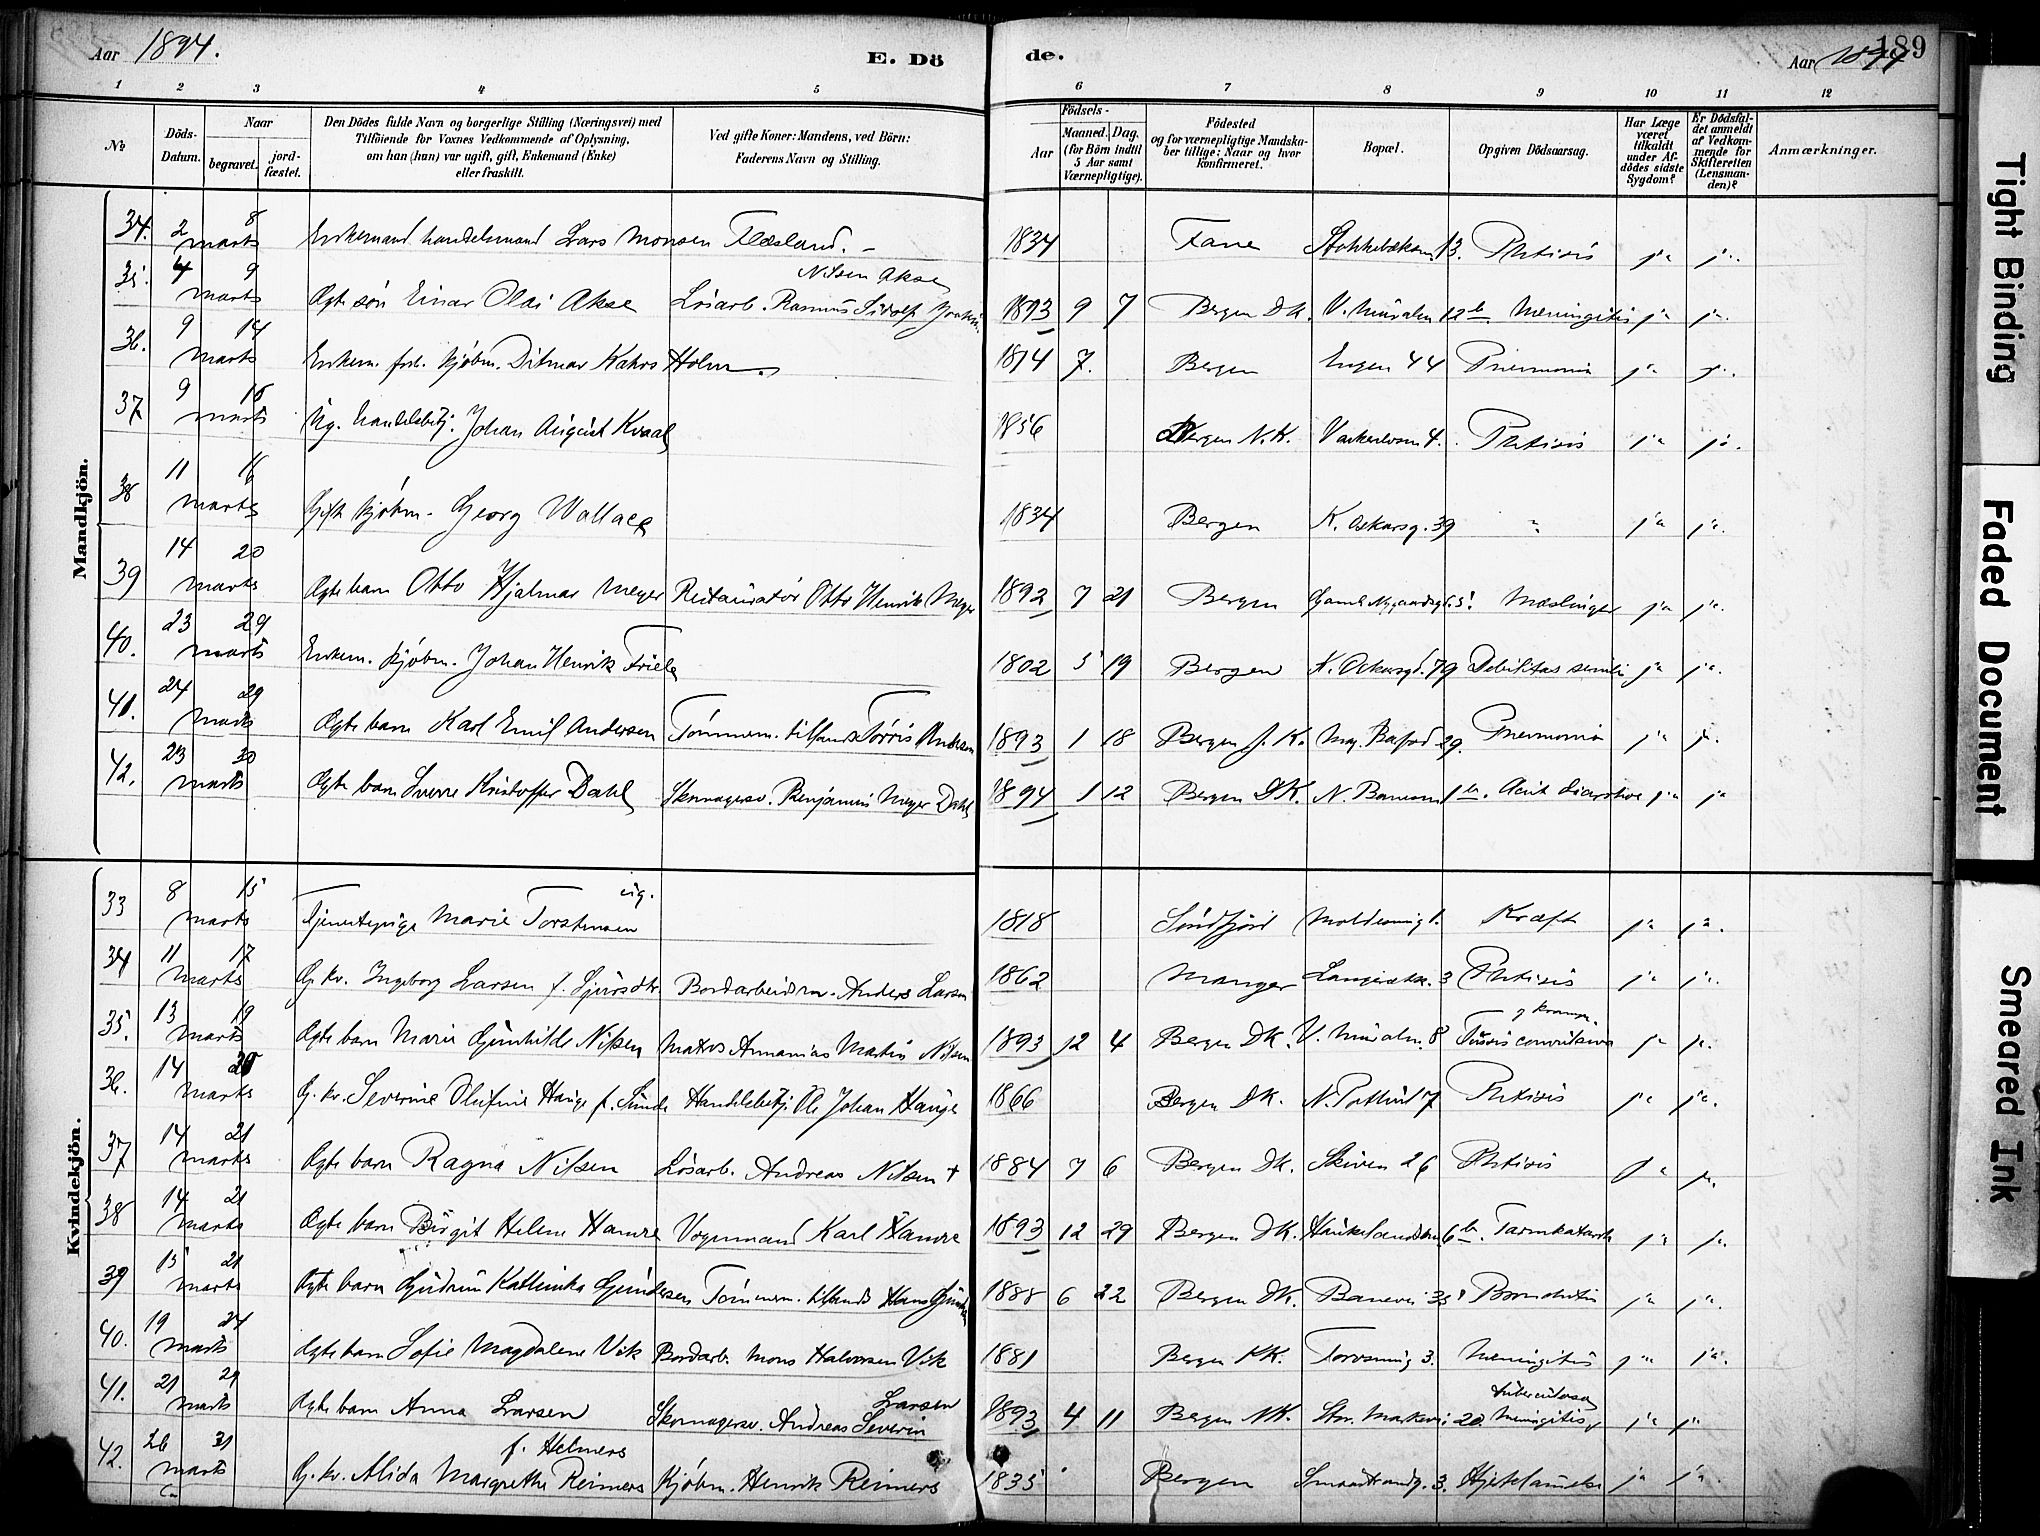 Aar 1894.
E. Dö
de.
Aar 1894
189
1 2 3 4 5 6 7 8 9 10 11 12
№
Döds-Datum.
Naar
begravet.
jord-fæstet.
Den Dödes fulde Navn og borgerlige Stilling (Næringsvei) med
Tilföiende for Voxnes Vedkommende af Oplysning,
om han (hun) var ugift, gift, Enkemand (Enke)
eller fraskilt.
Ved gifte Koner: Mandens, ved Börn:
Faderens Navn og Stilling.
Födsels-
Aar
Maaned. Dag.
(for Börn indtil
5 Aar samt
Værnepligtige).
Födested
og for værnepligtige Mandska-
ber tillige: Naar og hvor
konfirmeret.
Bopæl.
Opgiven Dödsaarsag.
Har Læge
været
tilkaldt
under Af-
dödes sidste
Sygdom?
Er Dödsfal-
det anmeldt
af Vedkom-
mende for
Skifteretten
(Lensman-
den)?
Anmærkninger.
Mandkjön.
34. 2 8 marts Enkemand handelsmand Lars Monsen Flesland. 1834 Fane 13. Phtisis ja ja.
35. 4 9 marts Ægte søn Einar Olai Akse Løsarb. Rasmus Nilsen Akse 1893 9 7 Bergen DK. V. Muralm. 12 b. Meningitis ja ja.
36. 9 14 marts Enkem. forh. kjøbm. Ditmar Kahrs Holm 1814 7. Bergen Engen 44 Pneumoni ja ja.
37 9 16 marts Ug. handelsbetj. Johan August Kvaal 1856 Bergen N.K. 4. Phtisis ja ja.
38 11 16 marts Gift kjøbm. Georg Wallace 1834 Bergen K. Oskarsg. 39 " ja ja.
39 14 20 marts Ægte barn Otto Hjalmar Meyer Restauratør Otto Henrik Meyer 1892 7 21 Bergen Gamle Nygaardsgd. 5. Mæslinger ja ja.
40. 23 29 marts Enkem. kjøbm. Johan Henrik Friele 1802 5 19 Bergen K. Oskarsgd. 79 Debilitas senilis ja ja.
41. 24 29 marts Ægte barn Karl Emil Andersen Tømmerm. tilhands Tørris Andersen 1893 1 18 Bergen J.K. 29. Pneumoni ja ja.
42. 23 30 marts Ægte barn Sverre Kristoffer Dahl Skomagersv. Benjamin Meyer Dahl 1894 1 12 Bergen DK. 1 b. Acut diarrhoe ja ja
Kvindekjön.
33 8 15 marts Tjenestepige Marie Torstensen ug. 1818 Søndfjord Kræft ja ja.
34 11 17 marts G. kv. Ingeborg Larsen f. Sjursdtr. Bordarbeidsm. Anders Larsen 1862 Manger 3 Phtisis ja ja.
35. 13 19 marts Ægte barn Marie Gunhilde Nilsen Matros Annanias Martin Nilsen 1893 12 4 Bergen DK. V. Muralm. 8 Tussis convulsiva ja ja.
36. 14 20 marts G. kv. Severine Olufine Hauge f. Sunde Handelsbetj. Ole Johan Hauge 1866 Bergen DK. 7 Phtisis ja ja.
37 14 21 marts Ægte barn Ragna Nilsen Løsarb. Andreas Nilsen + 1884 7 6 Bergen DK. Skiven 26 Phtisis ja ja.
38 14 21 marts Ægte barn Birgit Helene Hamre Vognmand Karl Hamre 1893 12 29 Bergen DK. 6 b. Tarmkatarrh ja ja.
39 15 21 marts Ægte barn Gudrun Kathinka Gundersen Tømmerm. tilhands Hans Gundersen 1888 6 22 Bergen DK. Banevei Bronchitis ja ja.
40. 19 24 marts Ægte barn Sofie Magdalene Vik Bordarb. Mons Halvorsen Vik 1881 Bergen 3. Meningitis ja ja.
41. 21 29 marts Ægte barn Anna Larsen Skomagersv. Andreas Severin Larsen 1893 4 11 Bergen NK. Stor. Markevei 20. Meningitis tuberculosa ja ja
42. 26 31 marts G. kv. Alida Margrethe Reimers f. Helmers Kjøbm. Henrik Reimers 1835 Bergen Smaastrandg. 3. Hjertelamelse ja ja.
Tight Binding
Faded Document
Smeared Ink